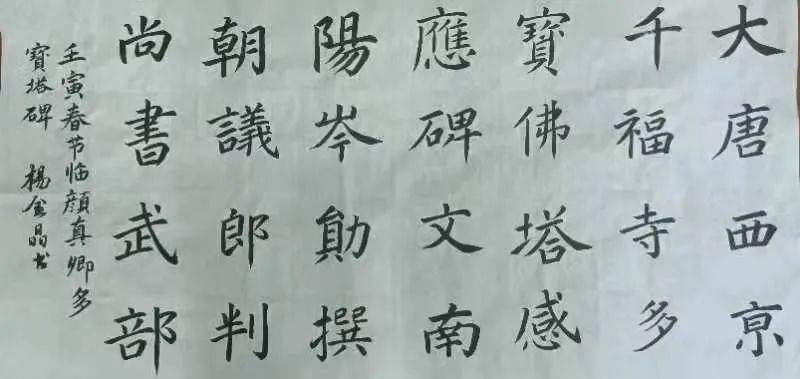 大唐西京
千福寺多
寶佛塔感
應碑文南
陽岑勛撰
朝議郎判
尚書武部
壬寅春节临顔真卿多
寶塔碑 楊金晶书